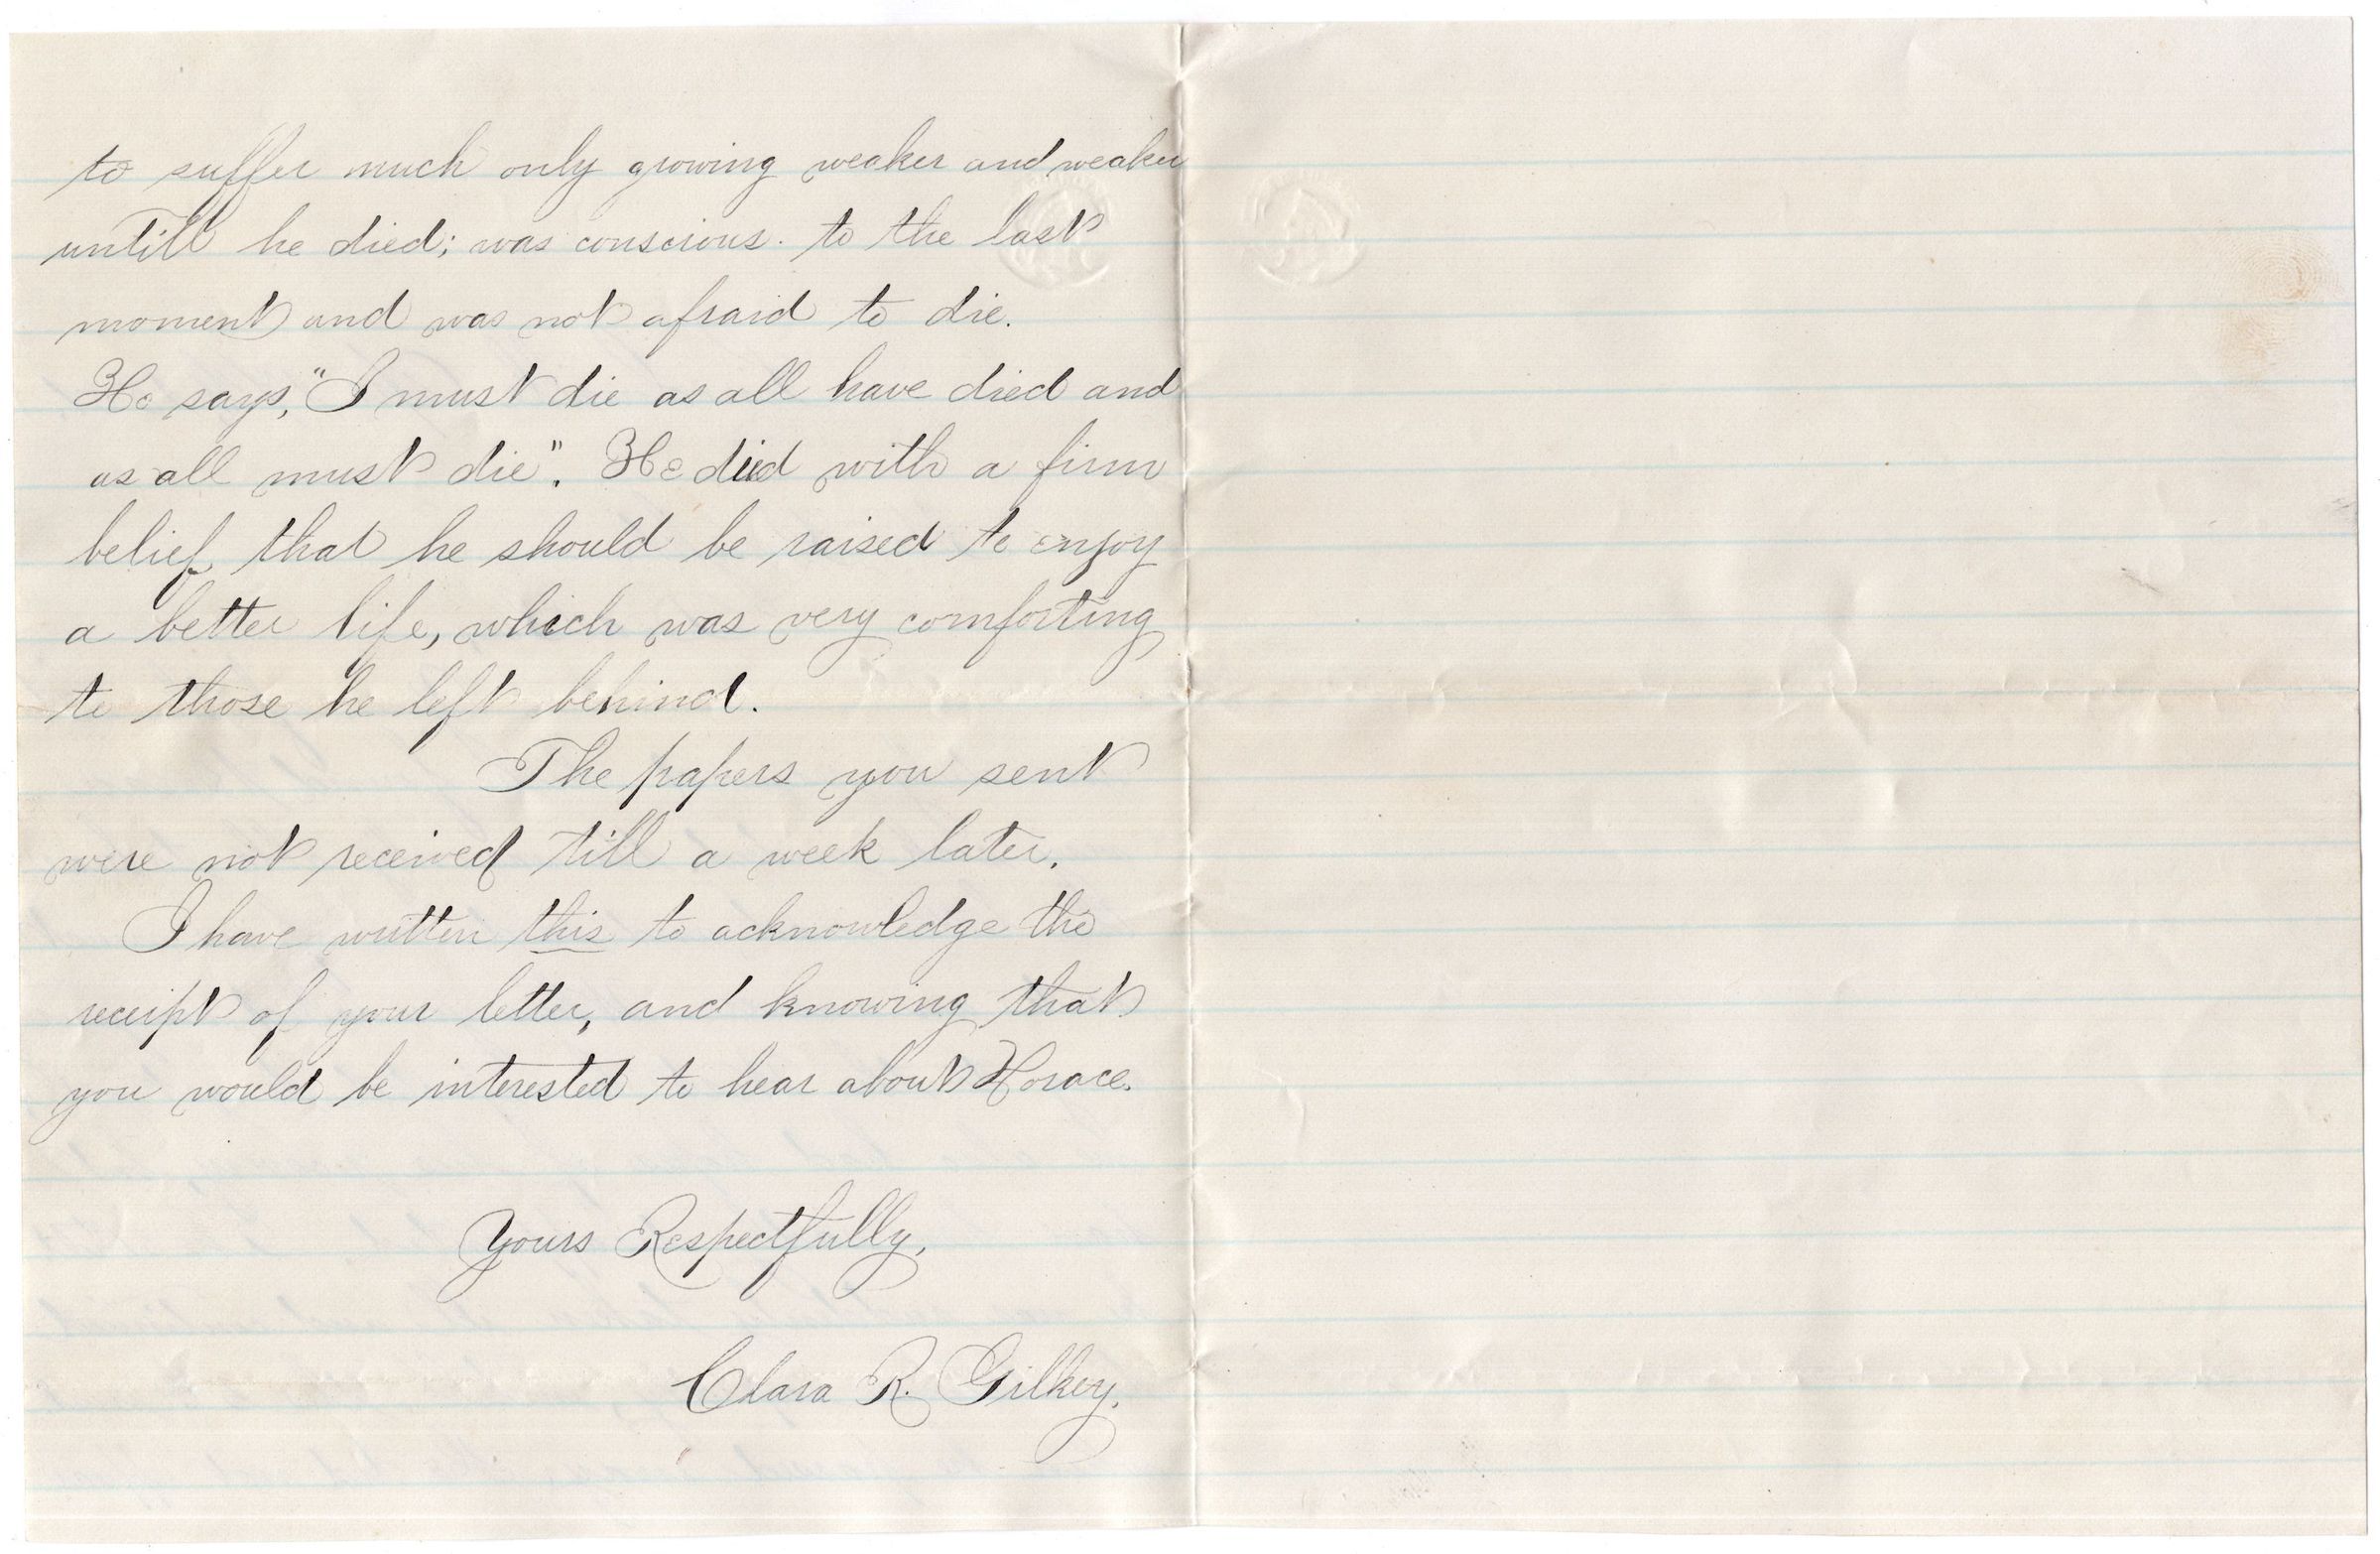 to suffer much only growing weaker and weaker
untill he died; was conscious. to the last
moment and was not afraid to die.
He says, "I must die as all have died and
as all must die". He died with a firm
belief that he should be raised to enjoy
a better life, which was very comforting
to those he left behind.
The papers you sent
were not received till a week later.
I have written this to acknowledge the
receipt of your letter, and knowing that
you would be interested to hear about Horace.
Yours Respectfully,
Clara R. Gilkey.